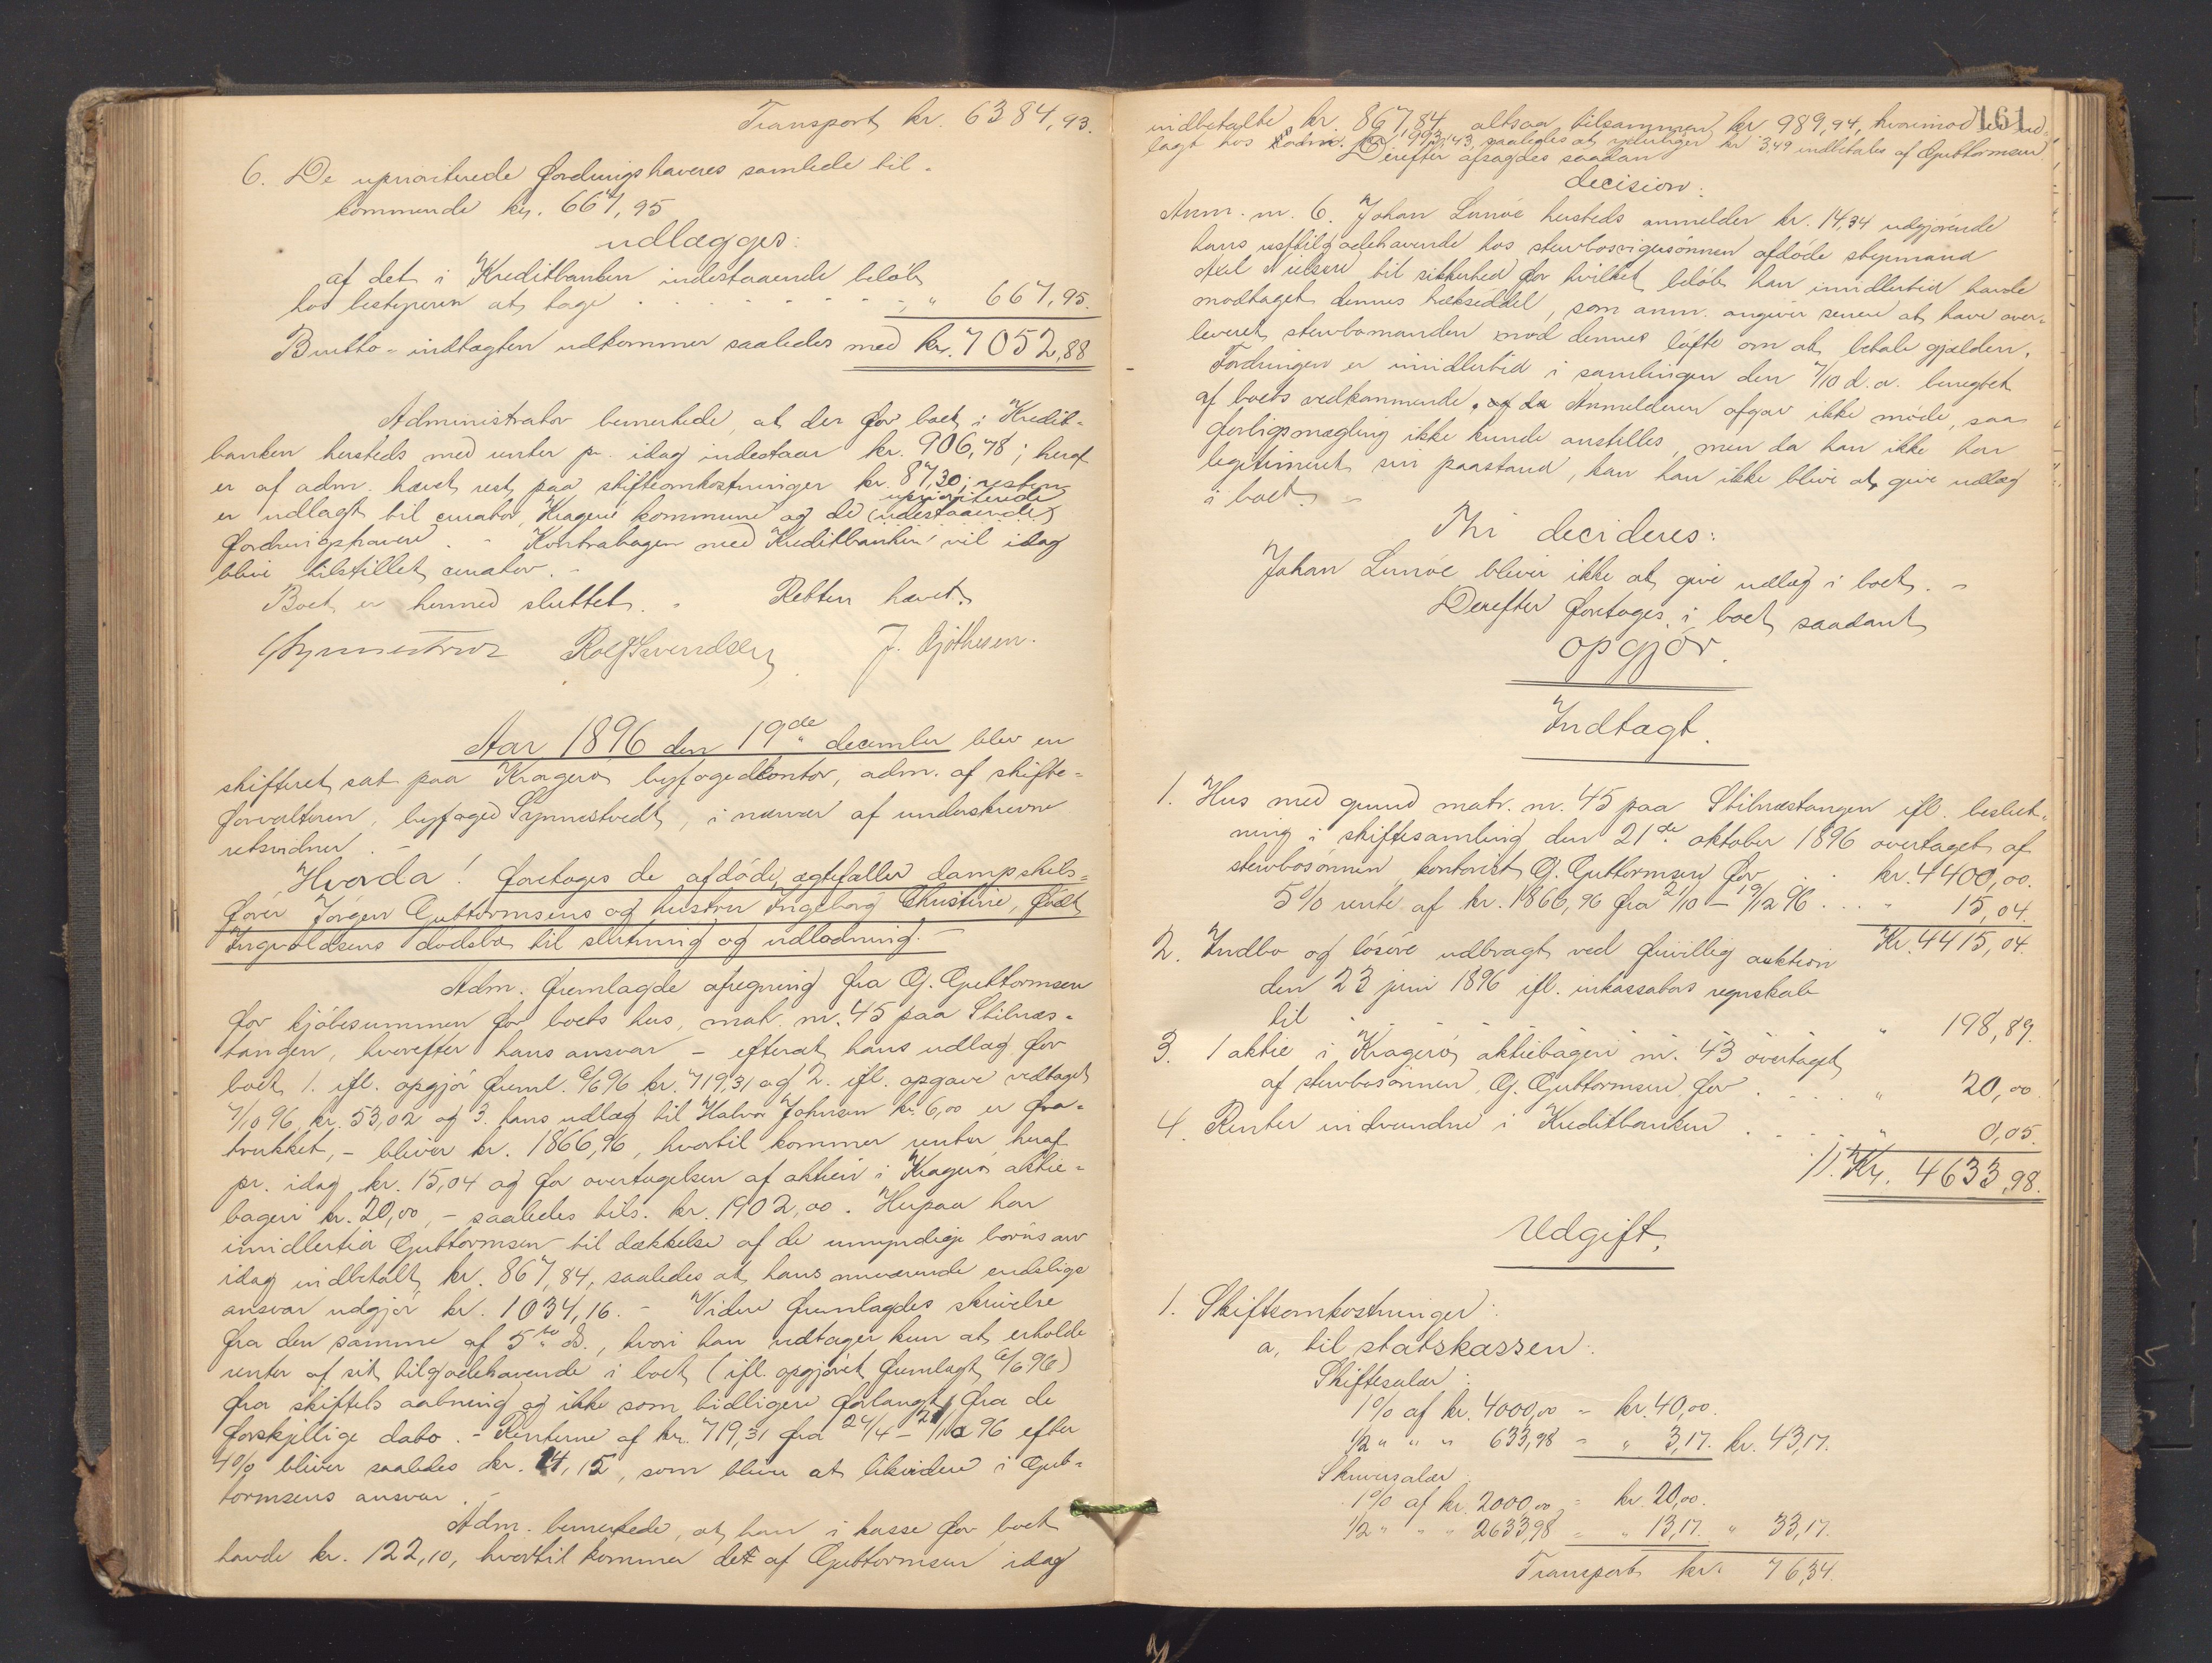 Transport kr. 6384,93.
6. De uprioriterede fordringshaveres samlede til-
kommende kr. 667,95
udlægges:
af det i Kreditbanken indestaaende beløb
hos bestyreren at tage . . . . . . . " 667,95.
Brutto-indtægten udkommer saaledes med kr. 7052,88
Administrator bemerkede, at der for boet i Kredit-
banken hersteds med renter pr. idag indestaar kr. 906,78; heraf
er af adm. hævet rest paa skifteomkostninger kr. 87,30; resten
er udlagt til curator, Kragerø kommune og de (indestaaende) uprioriterede
fordringshavere. - Kontrabogen med Kreditbanken vil idag
blive tilstillet curator. -
Boet er hermed sluttet. - Retten hævet.
Synnestvedt Rolf Svendsen J. Gjøthesen.
Aar 1896 den 19de december blev en
skifteret sat paa Kragerø byfogedkontor, adm. af skifte-
forvalteren, byfoged Synnestvedt, i nærvær af underskrevne
retsvidner. -
Hvorda! foretoges de afdøde ægtefæller dampskibs-
fører Jørgen Guttormsens og hustru Ingeborg Christine, født
Ingvoldsens dødsbo til slutning og udlodning. -
Adm. fremlagde afregning fra G. Guttormsen
for kjøbesummen for boets hus, matr. nr. 45 paa Stilnæs-
tangen, hvorefter hans ansvar - efterat hans udlæg for
boet 1. ifl. opgjør freml. 6/6 96 kr. 719,31 og 2. ifl. opgave vedtaget
7/10 96 kr. 53,02 og 3. hans udlæg til Halvor Johnsen kr. 6,00 er fra-
trukket, - bliver kr. 1866,96, hvortil kommer renter heraf
pr. idag kr. 15,04 og for overtagelsen af aktien i Kragerø aktie-
bageri kr. 20,00, - saaledes tils. kr. 1902,00. Herpaa har
imidlertid Guttormsen til dækkelse af de umyndige børns arv
idag indbetalt kr. 867,84, saaledes at hans nuværende endelige
ansvar udgjør kr. 1034,16. - Videre fremlagdes skrivelse
fra den samme af 5te ds., hvori han udtager kun at erholde
renter af sit tilgodehavende i boet (ifl. opgjøret fremlagt 6/6 96)
fra skiftets aabning og ikke som tidligere forlangt fra de
forskjellige dato. - Renterne af kr. 719,31 fra 24/4 - 21/10 96 efter
4% bliver saaledes kr. 14,15, som bliver at likvidere i Gut-
tormsens ansvar. -
Adm. bemerkede, at han i kasse for boet
havde kr. 122,10, hvortil kommer det af Guttormsen idag
161
indbetalte kr. 867,84 altsaa tilsammen kr. 989,94, hvorimod er ud-
lagt hos adm. kr. 993,43, saaledes at yderligere kr 3,49 indbetales af Guttormsen
Derefter afsagdes saadan
decision:
Anm. nr. 6. Johan Lunøe hersteds anmelder kr. 14,34 udgjørende
hans resttilgodehavende hos stervbosvigersønnen afdøde styrmand
Axel Nielsen til sikkerhed for hvilket beløb han imidlertid havde
modtaget dennes trækseddel, som anm. angiver senere at have over-
leveret stervbomanden mod dennes løfte om at betale gjælden.
Fordringen er imidlertid i samlingen den 7/10 d. a. benegtet
af boets vedkommende, og da Anmelderen afgav ikke møde, saa
forligsmægling ikke kunde anstilles, men da han ikke har
legitimeret sin paastand, kan han ikke blive at give udlæg
i boet. -
Thi decideres:
Johan Lunøe bliver ikke at give udlæg i boet. -
Derefter foretoges i boet saadant
opgjør.
Indtægt.
1. Hus med grund matr. nr. 45 paa Stilnæstangen ifl. beslut-
ning i skiftesamling den 21de oktober 1896 overtaget af
stervbosønnen kontorist G. Guttormsen for . . kr. 4400,00.
5% rente af kr. 1866,96 fra 21/10 - 19/12 96 . . . " 15,04.
Kr. 4415,04.
2. Indbo og løsøre udbragt ved frivillig auktion
den 23 juni 1896 ifl. inkassators regnskab
til . . . . . . . " 198,89.
3. 1 aktie i Kragerø aktiebageri nr. 43 overtaget
af stervbosønnen G. Guttormsen for . . . . " 20,00.
4. Renter indvundne i Kreditbanken . . . . " 0,05.
Kr. 4633,98.
Udgift.
1. Skifteomkostninger:
a, til statskassen:
Skiftesalær:
1% af kr. 4000,00 = kr. 40,00.
1/2 " " " 633,98 = " 3,17. kr. 43,17.
Skriversalær
1% af kr. 2000,00 = kr. 20,00.
1/2 " " " 2633,98 = " 13,17. " 33,17.
Transport kr. 76,34.